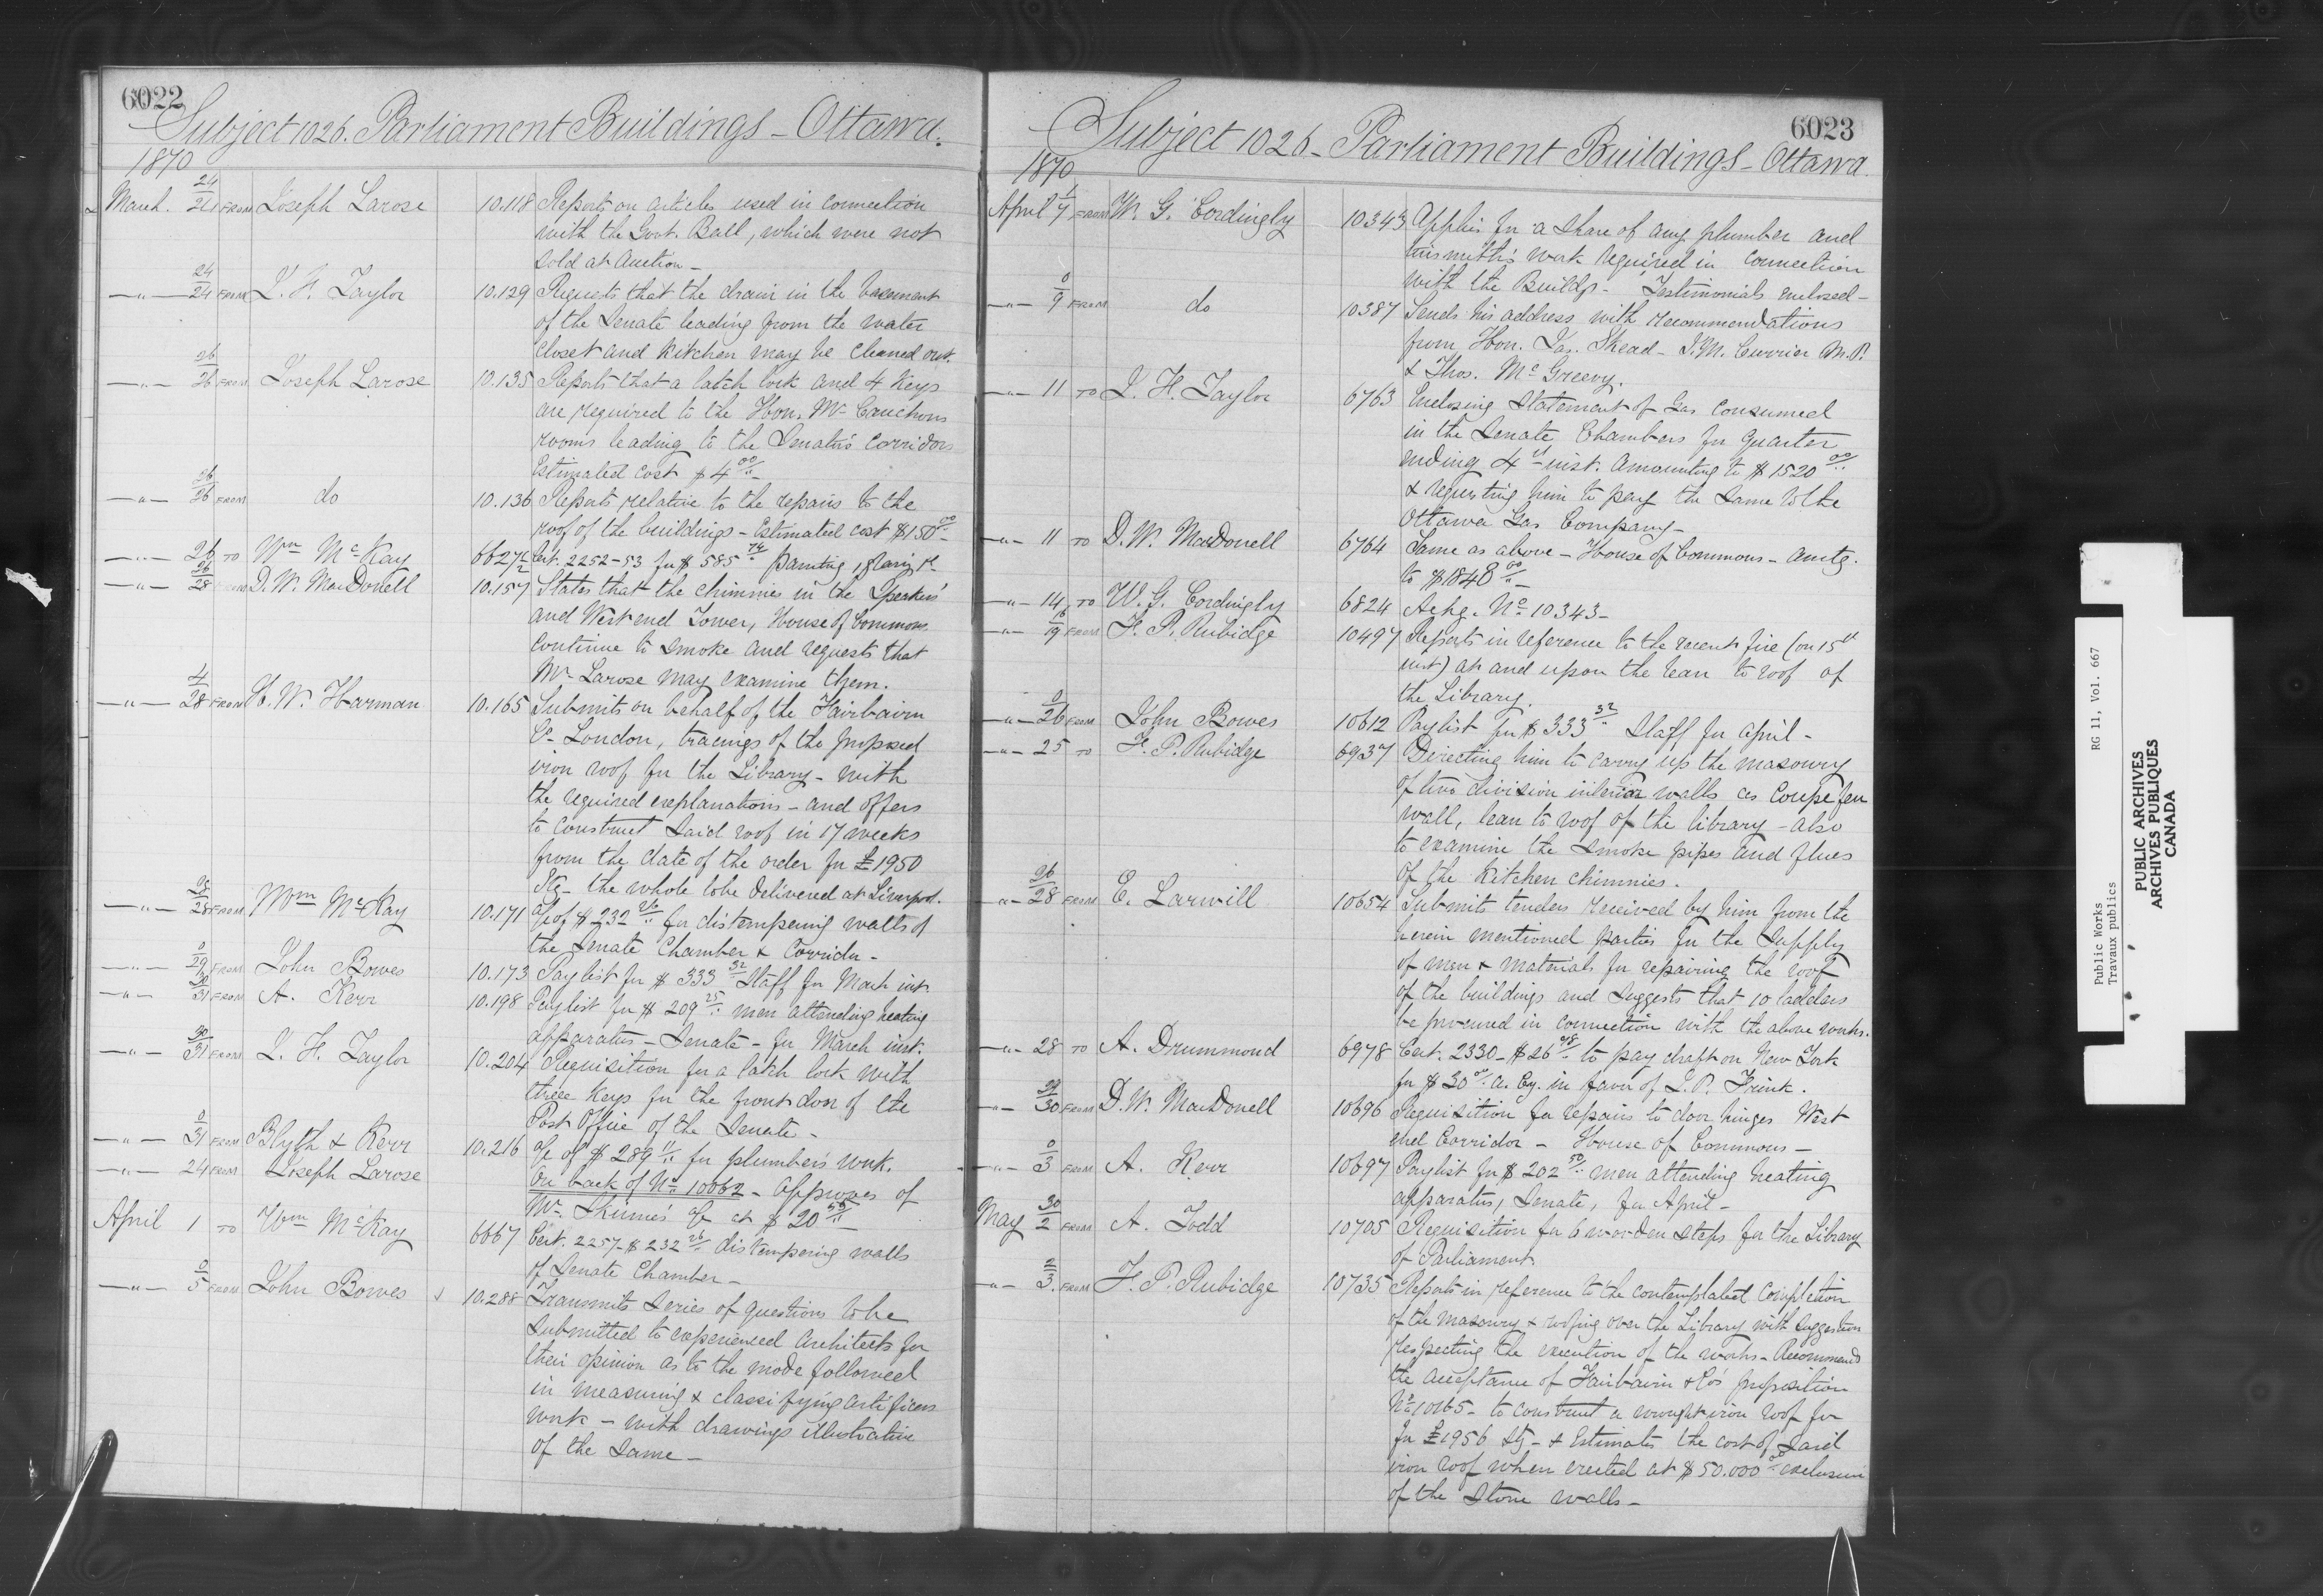 6022
Subject 1026. Parliament Buildings - Ottawa.
1870
March. 24/24 FROM Joseph Larose 10.118 Reports on articles used in connection
with the Govt. Ball, which were not
sold at Auction -
-"- 24/24 FROM J. H. Taylor 10.129 Requests that the drain in the basement
of the Senate leading from the water
closet and kitchen may be cleaned out.
-"- 26/26 FROM Joseph Larose 10.135 Reports that a latch lock and 4 Keys
are required to the Hon. Mr Cauchons
rooms leading to the Senate's corridors
Estimated cost $4 00/..
-"- 26/26 FROM do 10.136 Reports relative to the repairs to the
roof of the buildings - Estimated cost $150 00/..
-"- 26 TO Wm McKay 6627½ Cert. 2252-53 for $585 74/.. painting, glazing &c
-"- 26/28 FROM D. W. MacDonell 10.157 States that the chimnies in the Speakers'
and West end Tower, House of Commons
continue to smoke and requests that
Mr Larose may examine them.
-"- 4/28 FROM H. W. Harman 10.165 Submits on behalf of the Fairbairn
Co London, tracings of the proposed
iron roof for the Library - with
the required explanations - and offers
to construct said roof in 17 weeks
from the date of the order for £1950
Stg - the whole to be delivered at Liverpool.
-"- 28/28 FROM Wm McKay 10.171 a/c of $232 26/.. for distempering walls of
the Senate Chamber & Corridor -
-"- 0/29 FROM John Bowes 10.173 Pay list for $333 32/.. Staff for March inst.
-"- 30/31 FROM A. Kerr 10.198 Paylist for $209 25/.. men attending heating
apparatus - Senate - for March inst.
-"- 30/31 FROM J. H. Taylor 10.204 Requisition for a latch lock with
three Keys for the front door of the
Post Office of the Senate -
-"- 0/31 FROM Blyth & Kerr 10.216 a/c of $289 11/.. for plumber's work.
-"- 24 FROM Joseph Larose On back of No 10062 - Approves of
Mr Skinner's a/c at $20 55/..
April 1 TO Wm McKay 6667 Cert. 2257 - $232 26/.. distempering walls
of Senate Chamber -
-"- 0/5 FROM John Bowes 10.288 Transmits series of questions to be
submitted to experienced Architects for
their opinion as to the mode followed
in measuring & classifying artificers
work - with drawings illustrative
of the same -
6023
Subject 1026 - Parliament Buildings - Ottawa.
1870
April 1/7 FROM W. G. Cordingly 10343 Applies for a share of any plumber and
tinsmith's work required in connection
with the Buildgs - Testimonials enclosed -
-"- 0/9 FROM do 10387 Sends his address with recommendations
from Hon. Jas. Skead - J. M. Currier M.P.
& Thos. McGreevy.
-"- 11 TO J. H. Taylor 6763 Enclosing Statement of Gas consumed
in the Senate Chambers for Quarter
ending 4th inst. amounting to $1520 00/..
& requesting him to pay the same to the
Ottawa Gas Company -
-"- 11 TO D. W. MacDonell 6764 Same as above - House of Commons - amtg.
to $1848 00/..
-"- 14 TO W. G. Cordingly 6824 Ackg. No 10343 -
-"- 16/19 FROM F. P. Rubidge 10497 Reports in reference to the recent fire (on 15th
inst) at and upon the lean to roof of
the Library.
-"- 0/26 FROM John Bowes 10612 Paylist for $333 32/.. Staff for April -
-"- 25 TO F. P. Rubidge 6937 Directing him to carry up the masonry
of two division interior walls as Coupe feu
wall, lean to roof of the library - also
to examine the smoke pipes and flues
of the Kitchen chimnies.
-"- 26/28 FROM E. Larwill 10654 Submits tenders received by him from the
herein mentioned parties for the supply
of men & materials for repairing the roof
of the buildings and suggests that 10 ladders
be procured in connection with the above works.
-"- 28 TO A. Drummond 6978 Cert. 2330 - $26 48/.. to pay draft on New York
for $30 00/.. a. Cy. in favor of L. P. Frink.
-"- 29/30 FROM D. W. MacDonell 10696 Requisition for repairs to door hinges West
end Corridor - House of Commons -
-"- 0/3 FROM A. Kerr 10697 Paylist for $202 50/.. men attending heating
apparatus, Senate, for April -
May 30/2 FROM A. Todd 10705 Requisition for 6 wooden steps for the Library
of Parliament
-"- 2/3 FROM F. P. Rubidge 10735 Reports in reference to the contemplated completion
of the masonry & roofing over the Library with suggestion
respecting the execution of the works - Recommends
the acceptance of Fairbairn & Co's proposition
No 10165 - to construct a wrought iron roof for
for £1956 Stg - & Estimates the cost of said
iron roof when erected at $50.000 exclusive
of the stone walls -
Public Works
Travaux publics
RG 11, Vol. 667
PUBLIC ARCHIVES
ARCHIVES PUBLIQUES
CANADA